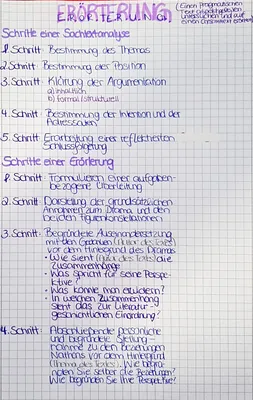 ERÖRTERUNG
(Einen Pragmatischen
Text
untersuchen und auf
einen
Schritte einer Sachtextanalyse
1. Schritt: Bestimmung des Themas
2. Schritt: Bestimmung der Position
3. Schritt: Klärung der Argumentation
a) inhaltlich
b) formal/strukturell
4. Schritt: Bestimmung der Intention und der
Adressaten
5. Schritt: Erarbeitung einer reflektierten
Schlussfolgerung
Schritte einer Erörterung
1. Schritt: Formulieren einer aufgaben-
bezogene Überleitung
2. Schritt: Darstellung der grundsätzlichen
Annahmen zum Drama und den
beiden Figurenkonstellationen
3. Schritt: Begründete Auseinandersetzung
mit den Gedanken (Autor des Textes)
vor dem Hintergrund des Dramas
• Wie sieht (Autor des Textes) die
Zusammenhänge
• Was spricht für seine Perspe-
ktive?
• Was könnte man kritisieren?
• In welchem Zusammenhang
steht das zur Literatur-
geschichtlichen Einordnung?
4. Schritt: Abschließende persönliche
und begründete Stellung-
nahme zu den Beziehungen
Nathans vor dem Hintergrund
(Thema des Textes). Wie
Sie selbst die Beziehung?
Wie begründen Sie Ihre Perspektive?